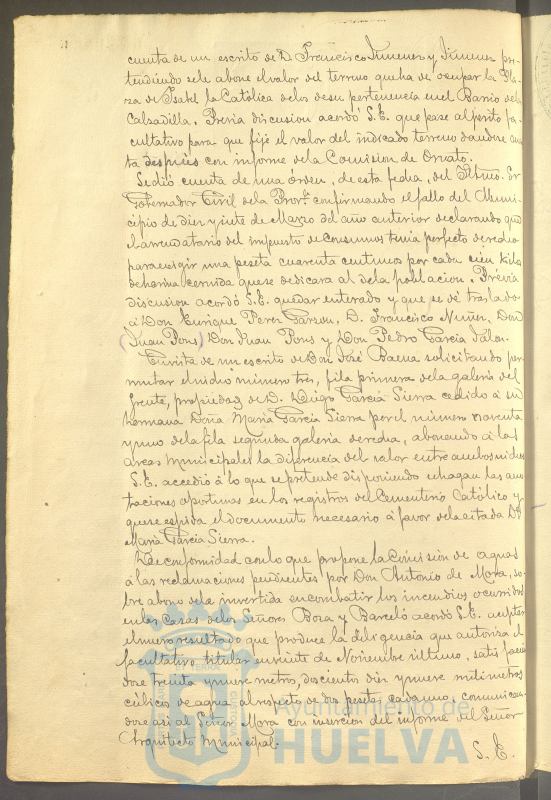 cuenta de un escrito de D. Francisco Jimenez y Jimenez pre-
tendiendo se le abone el valor del terreno que ha de ocupar la Pla-
za de Isabel la Católica de los de su pertenencia en el Barrio de la
Calzadilla. Previa discusion acordó S.E. que pase al perito fa-
cultativo para que fije el valor del indicado terreno dandose cuen-
ta despues con informe de la Comision de Ornato.
Se dió cuenta de una órden, de esta fecha, del Iltmo. Sr
Gobernador Civil de la Provª confirmando el fallo del Muni-
cipio de diez y siete de Marzo del año anterior declarando que
el arrendatario del impuesto de consumos tenia perfecto derecho
para exigir una peseta cuarenta centimos por cada cien kilos
de harina cernida que se dedicara al de la poblacion. Prévia
discusion acordó S.E. quedar enterado y que se dé traslado
á Don Enrique Perez Garzon, D. Francisco Nuñez, Don
(Juan Pons) Don Juan Pons y Don Pedro Garcia Jalon.
En vista de un escrito de Don José Baena solicitando per-
mutar el nicho número tres, fila primera de la galeria del
frente, propiedad de D. Diego Garcia Sierra cedido á su
hermana Doña Maria Garcia Sierra por el número noventa
y uno de la fila segunda galeria derecha, abonando á las
arcas municipales la diferencia del valor entre ambos nichos
S.E. accedió á lo que se pretende disponiendo se hagan las ano-
taciones oportunas en los registros del Cementerio Católico y
que se espida el documento necesario á favor de la citada Dª
Maria Garcia Sierra.
De conformidad con lo que propone la Comision de aguas
á las reclamaciones pendientes por Don Antonio de Mora, so-
bre abono de la invertida en combatir los incendios ocurridos
en las Casas de los Señores Boza y Barceló acordó S.E. aceptar
el nuevo resultado que produce la diligencia que autoriza el
facultativo titular en veinte de Noviembre último, satisfacien-
dose treinta y nueve metros, doscientos diez y nueve milimetros
cúbicos de agua al respecto de dos pesetas cada uno, comunican-
dose asi al Señor Mora con insercion del informe del Señor
Arquitecto Municipal.
S. E.
Ayuntamiento de
HUELVA